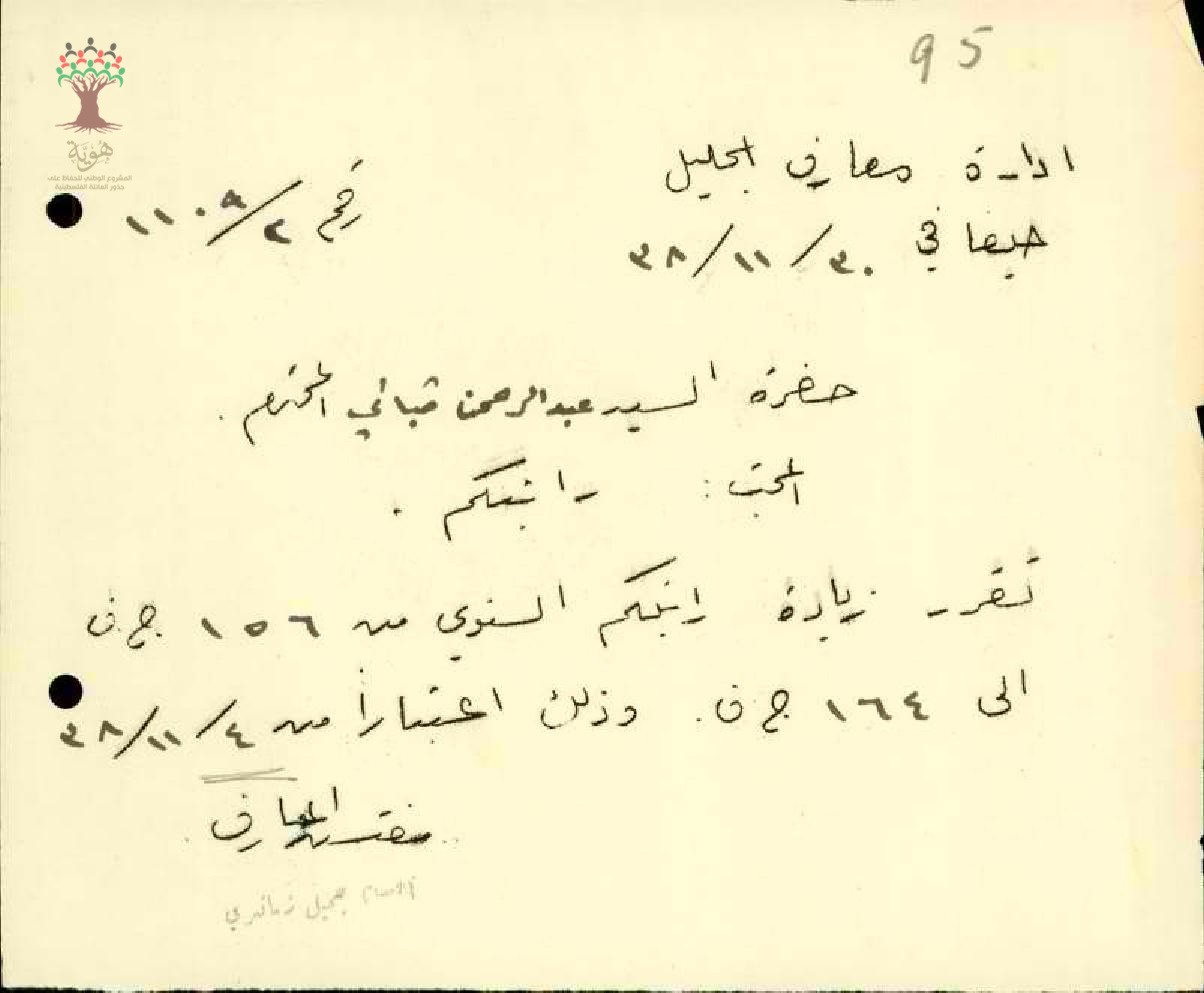 95
هوية
المشروع الوطني للحفاظ على
جذور العائلة الفلسطينية
ادارة معارف الجليل
رقم ٢/١١٠٩
حيفا في ٣٠/١١/٣٨
حضرة السيد عبدالرحمن قباني المحترم.
المبحث: راتبكم.
تقرر زيادة راتبكم السنوي من ١٥٦ ج.ف
الى ١٦٤ ج.ف. وذلك اعتباراً من ٤/١١/٣٨
مفتش المعارف
جميل